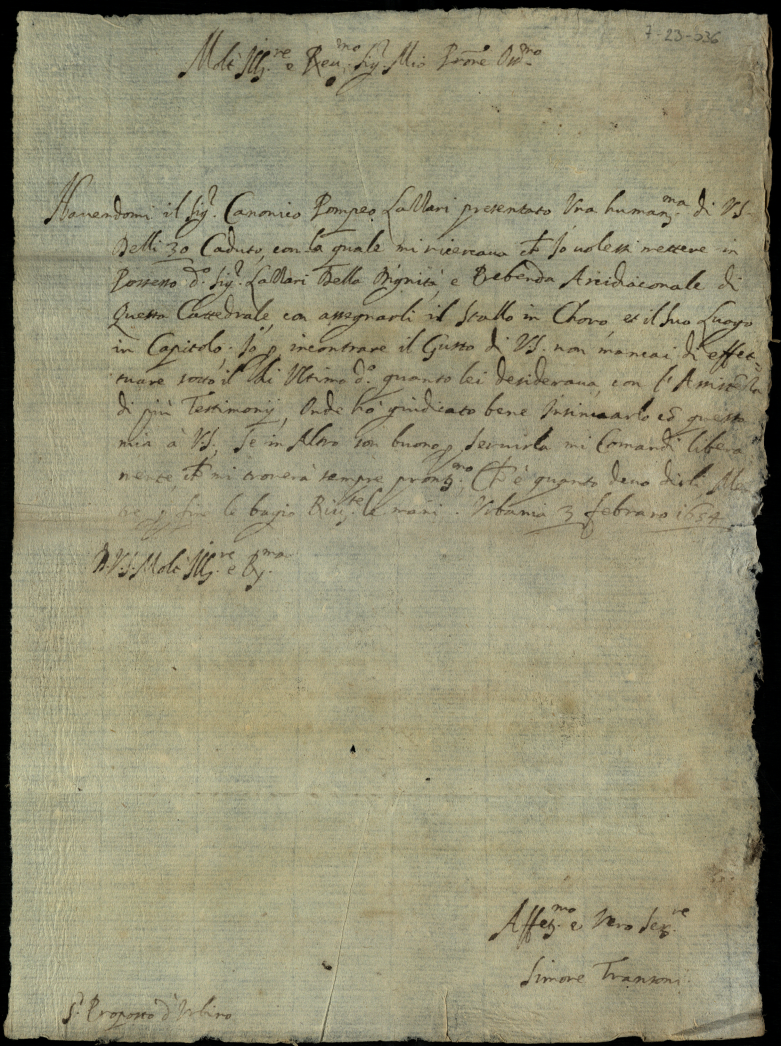 7-23-036
Molt' Ill.re e Reu.mo Sig.r Mio Prone Oss.mo
Hauendomi il Sig.r Canonico Pompeo Lazzari presentato Una human.ma di VS.
Delli 30 Caduto, con la quale mi ricercaua ch' Io uolessi mettere in
Possesso d.o Sig.r Lazzari Della Dignità, e Prebenda Arcidiaconale di
Questa Cattedrale, con assegnarli il Stallo in Choro, et il suo Luogo
in Capitolo. Io p incontrare il Gusto di VS. non mancai di effet-
tuare sotto il di Ultimo d.o quanto lei desideraua, con l'
di più Testimonij, Onde hò giudicato bene Insinuarlo cō questa
mia à VS. Se in Altro son buono p seruirla mi Comandi libera
mente, ch' mi trouerà sempre pront.mo Ch' è quanto deuo dirli
re p fine le bagio Riu.te le mani. Vrbania 3 febraro 1654
D. V.S. Molt' Ill.re e R.ma
Affet.mo e Vero Ser.re
Simone
S.r Proposto d'Urbino